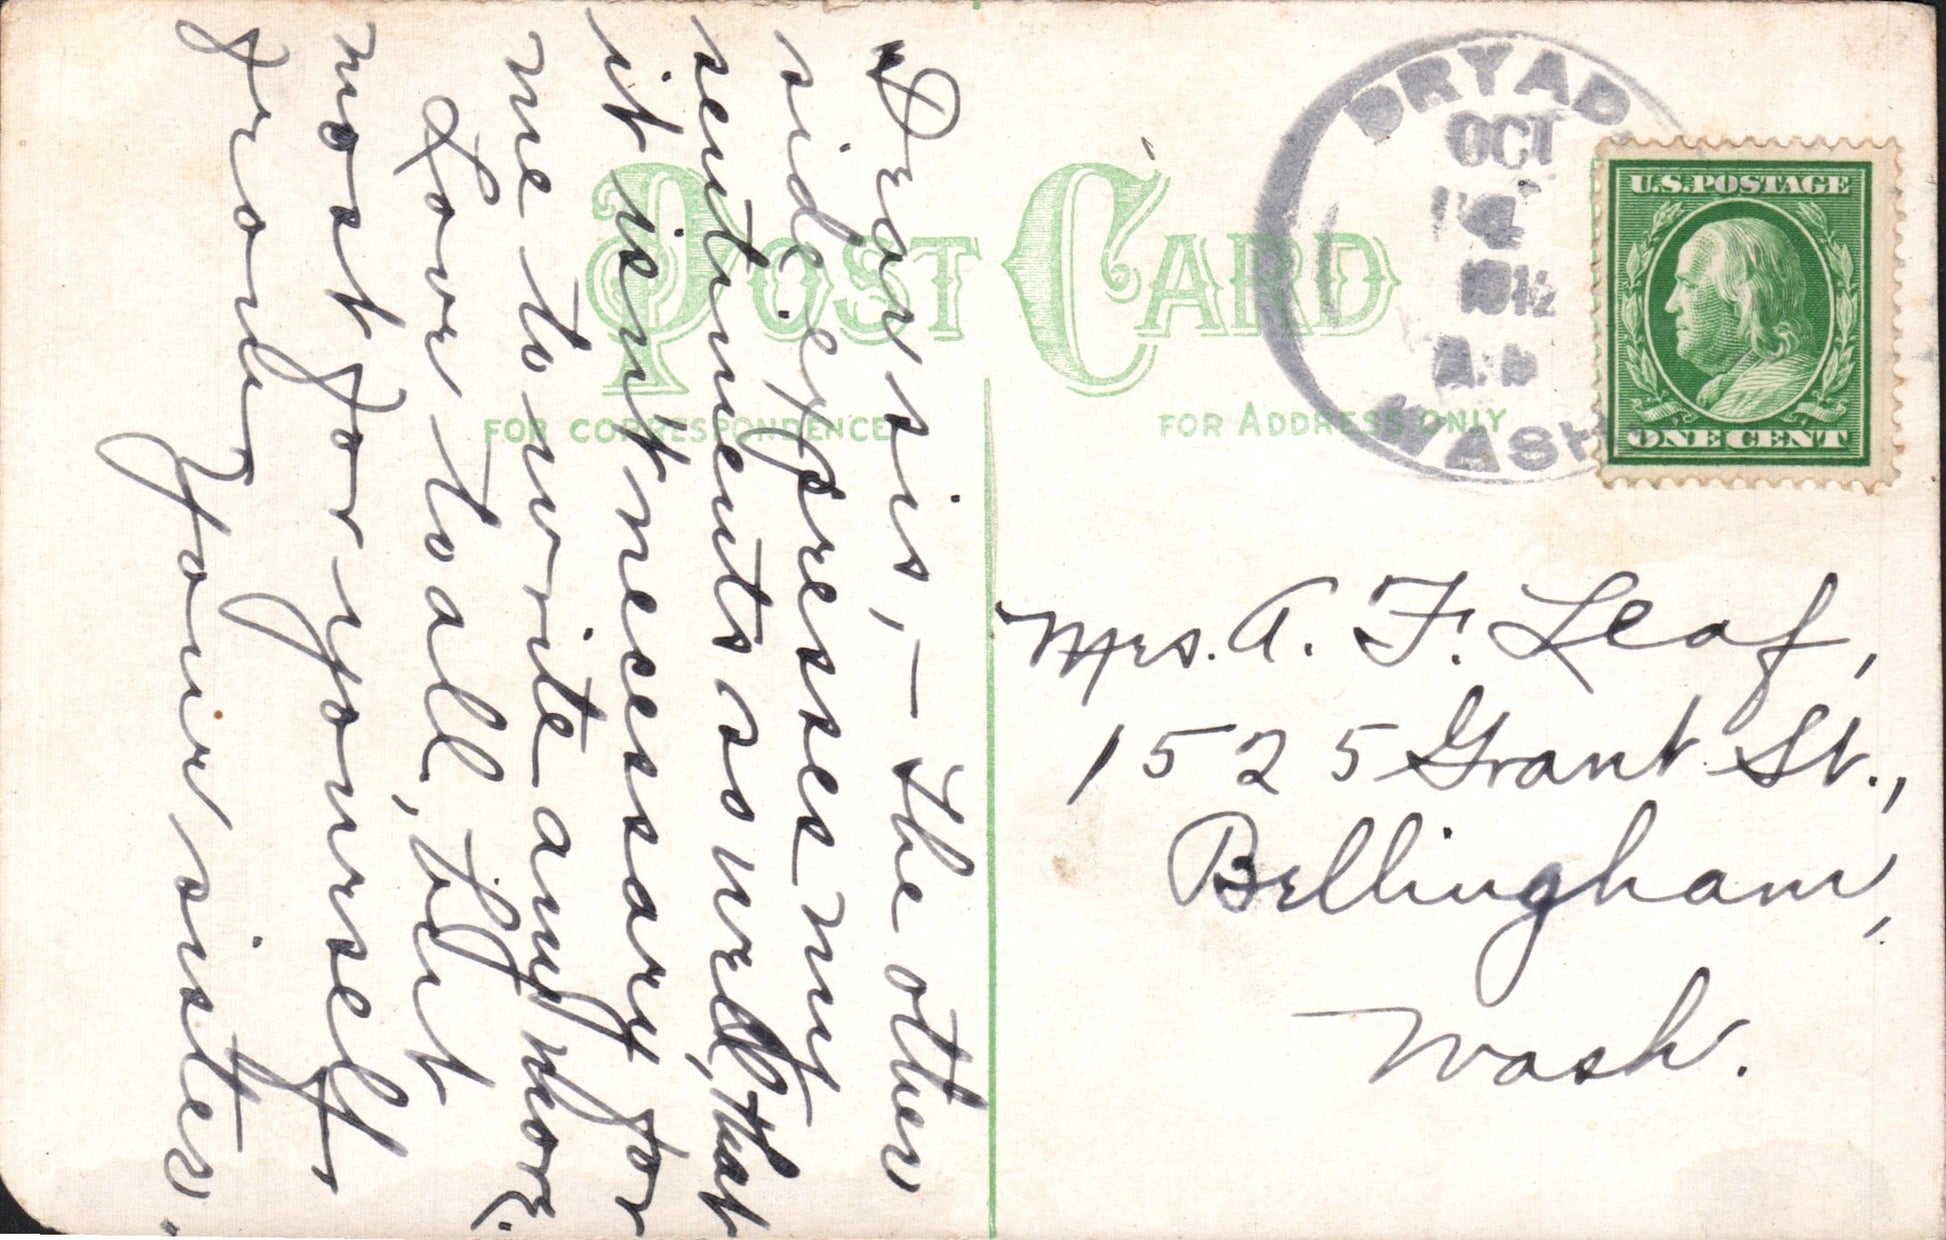 Dear sis, — the other
side expresses my
sentiments so well, that
it isn't necessary for
me to write any more.
Love to all, but
most for yourself
from
Your sister.
POST CARD
FOR CORRESPONDENCE
FOR ADDRESS ONLY
DRYAD
OCT
4
1912
WASH
U.S. POSTAGE
ONE CENT
Mrs. A. F. Leaf,
1525 Grant St.,
Bellingham,
Wash.